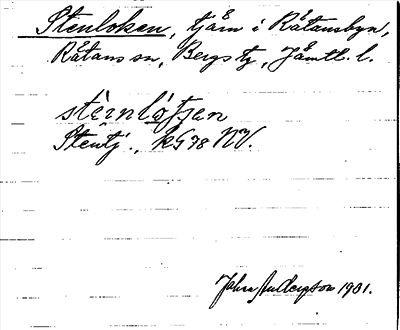 Stenloken, tjärn i Rätansbyn,
Rätans sn, Bergs tg, Jämtl. l.
stèinlo̱fjen
Stentj., kG 78 NV.
John 1901.